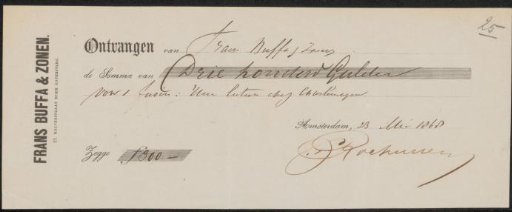 25
FRANS BUFFA & ZONEN.
Ontvangen van Frans Buffa & Zonen
de Somma van Drie honderd Gulden
voor 1 : Une lecture chez
Amsterdam, 23 Mei 1868
Zegge f 300 —
C Rochussen